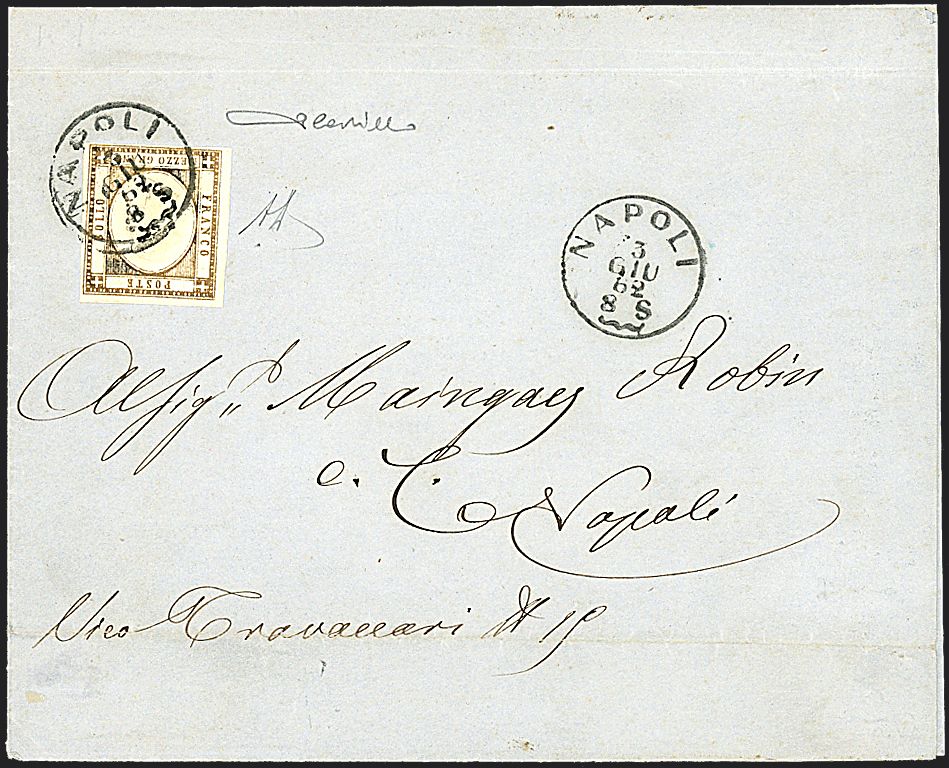 NAPOLI
GIU
62
8 S
EZZO GRA
FRANCO
POSTE
NAPOLI
3
GIU
62
8 S
Al Sig.r Maingay Robin
e. C. Napoli
Vico Travaccari N 19